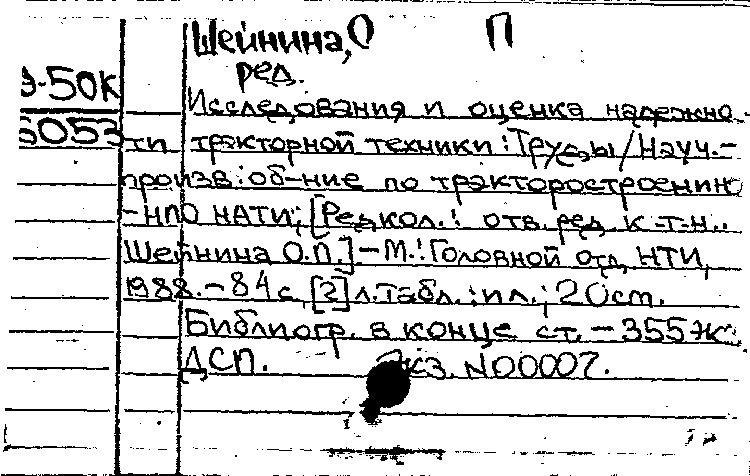 Шейнина, О П
ред.
Э-50К
5053
Исследования и оценка надежнос-
ти тракторной техники: Труды/Науч.-
произв. об-ние по тракторостроению
-НПО НАТИ; [Редкол.: отв. ред. к.т.н.
Шейнина О.П.]-М.: Головной отд. НТИ,
1988.-84с., [2] л. табл.: ил.; 20см.
Библиогр. в конце ст. - 355 экз.
ДСП. Экз. N00007.